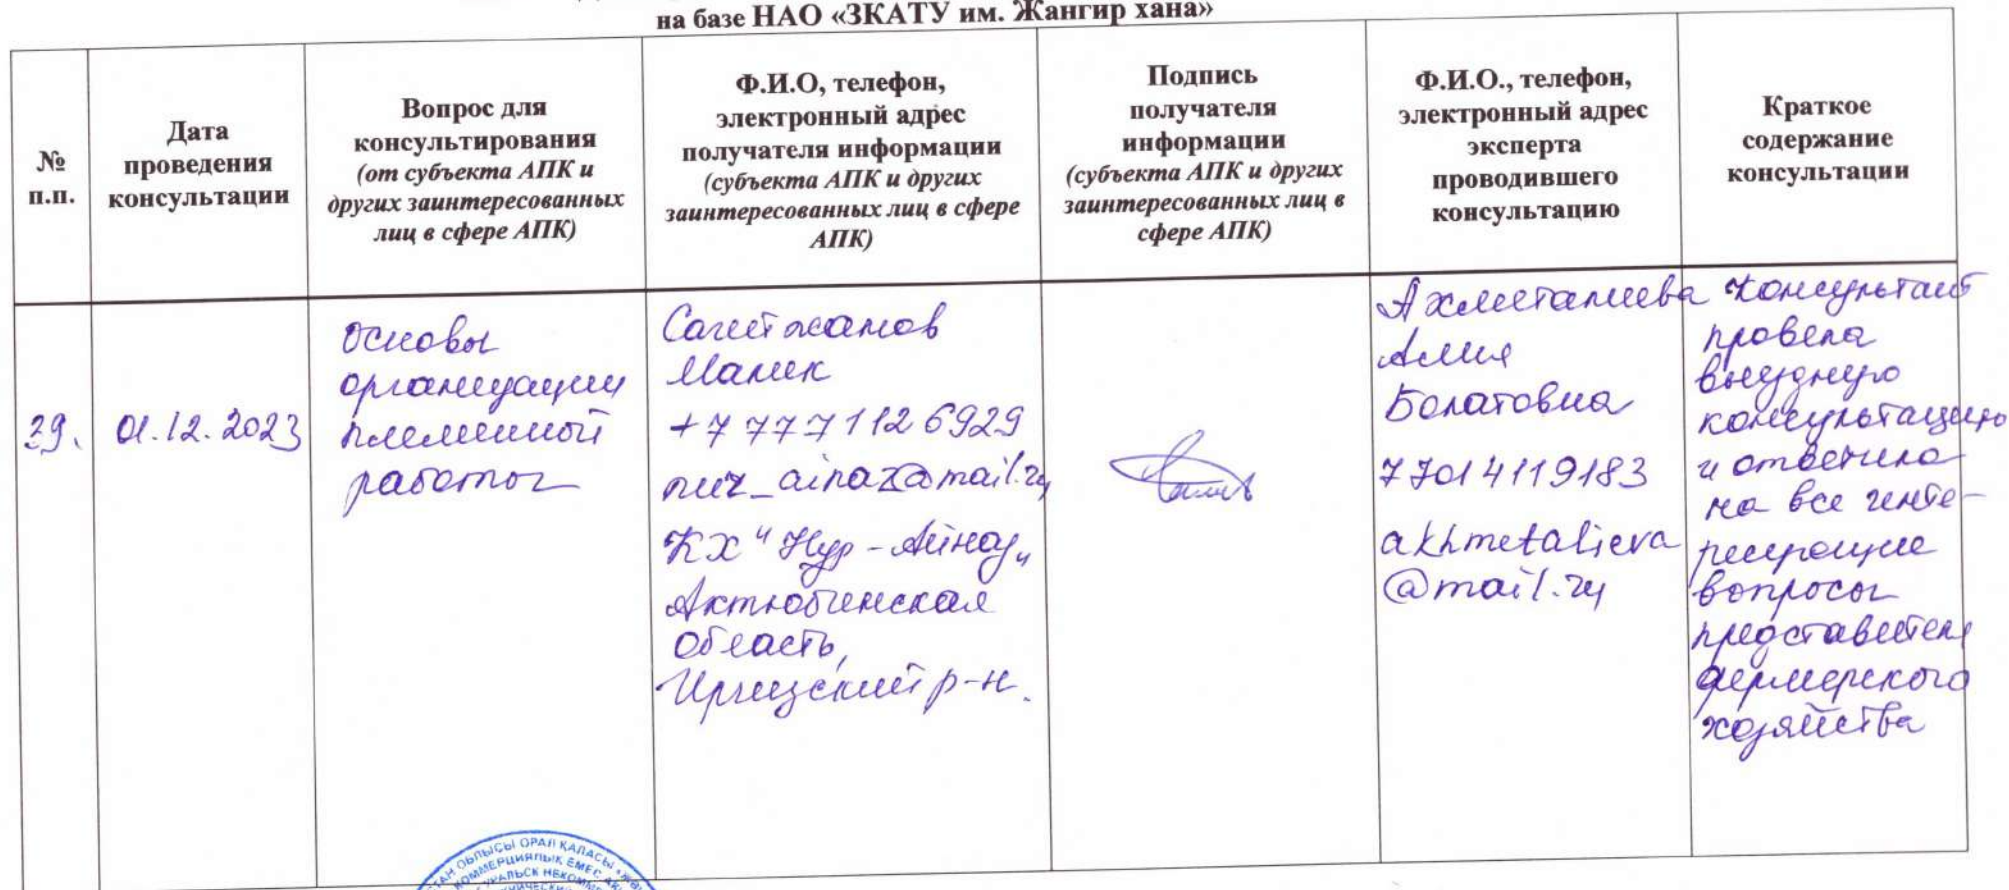 на базе НАО «ЗКАТУ им. Жангир хана»
№
п.п.
Дата
проведения
консультации
Вопрос для
консультирования
(от субъекта АПК и
других заинтересованных
лиц в сфере АПК)
Ф.И.О, телефон,
электронный адрес
получателя информации
(субъекта АПК и других
заинтересованных лиц в сфере
АПК)
Подпись
получателя
информации
(субъекта АПК и других
заинтересованных лиц в
сфере АПК)
Ф.И.О., телефон,
электронный адрес
эксперта
проводившего
консультацию
Краткое
содержание
консультации
29.
01.12.2023
основы
организации
племенной
работы
Сагитжанов
Малик
+7 777 112 6929
nur_ainaz@mail.ru
КХ "Нур-Айназ"
Актюбинская
область,
Иргизский р-н.
Ахметалиева
Алия
Болатовна
7 701 4119183
akhmetalieva
@mail.ru
Консультант
провела
выездную
консультацию
и ответила
на все инте-
ресующие
вопросы
представителя
фермерского
хозяйства
ОБЛЫСЫ ОРАЛ ҚАЛАСЫ
КОММЕРЦИЯЛЫҚ ЕМЕС